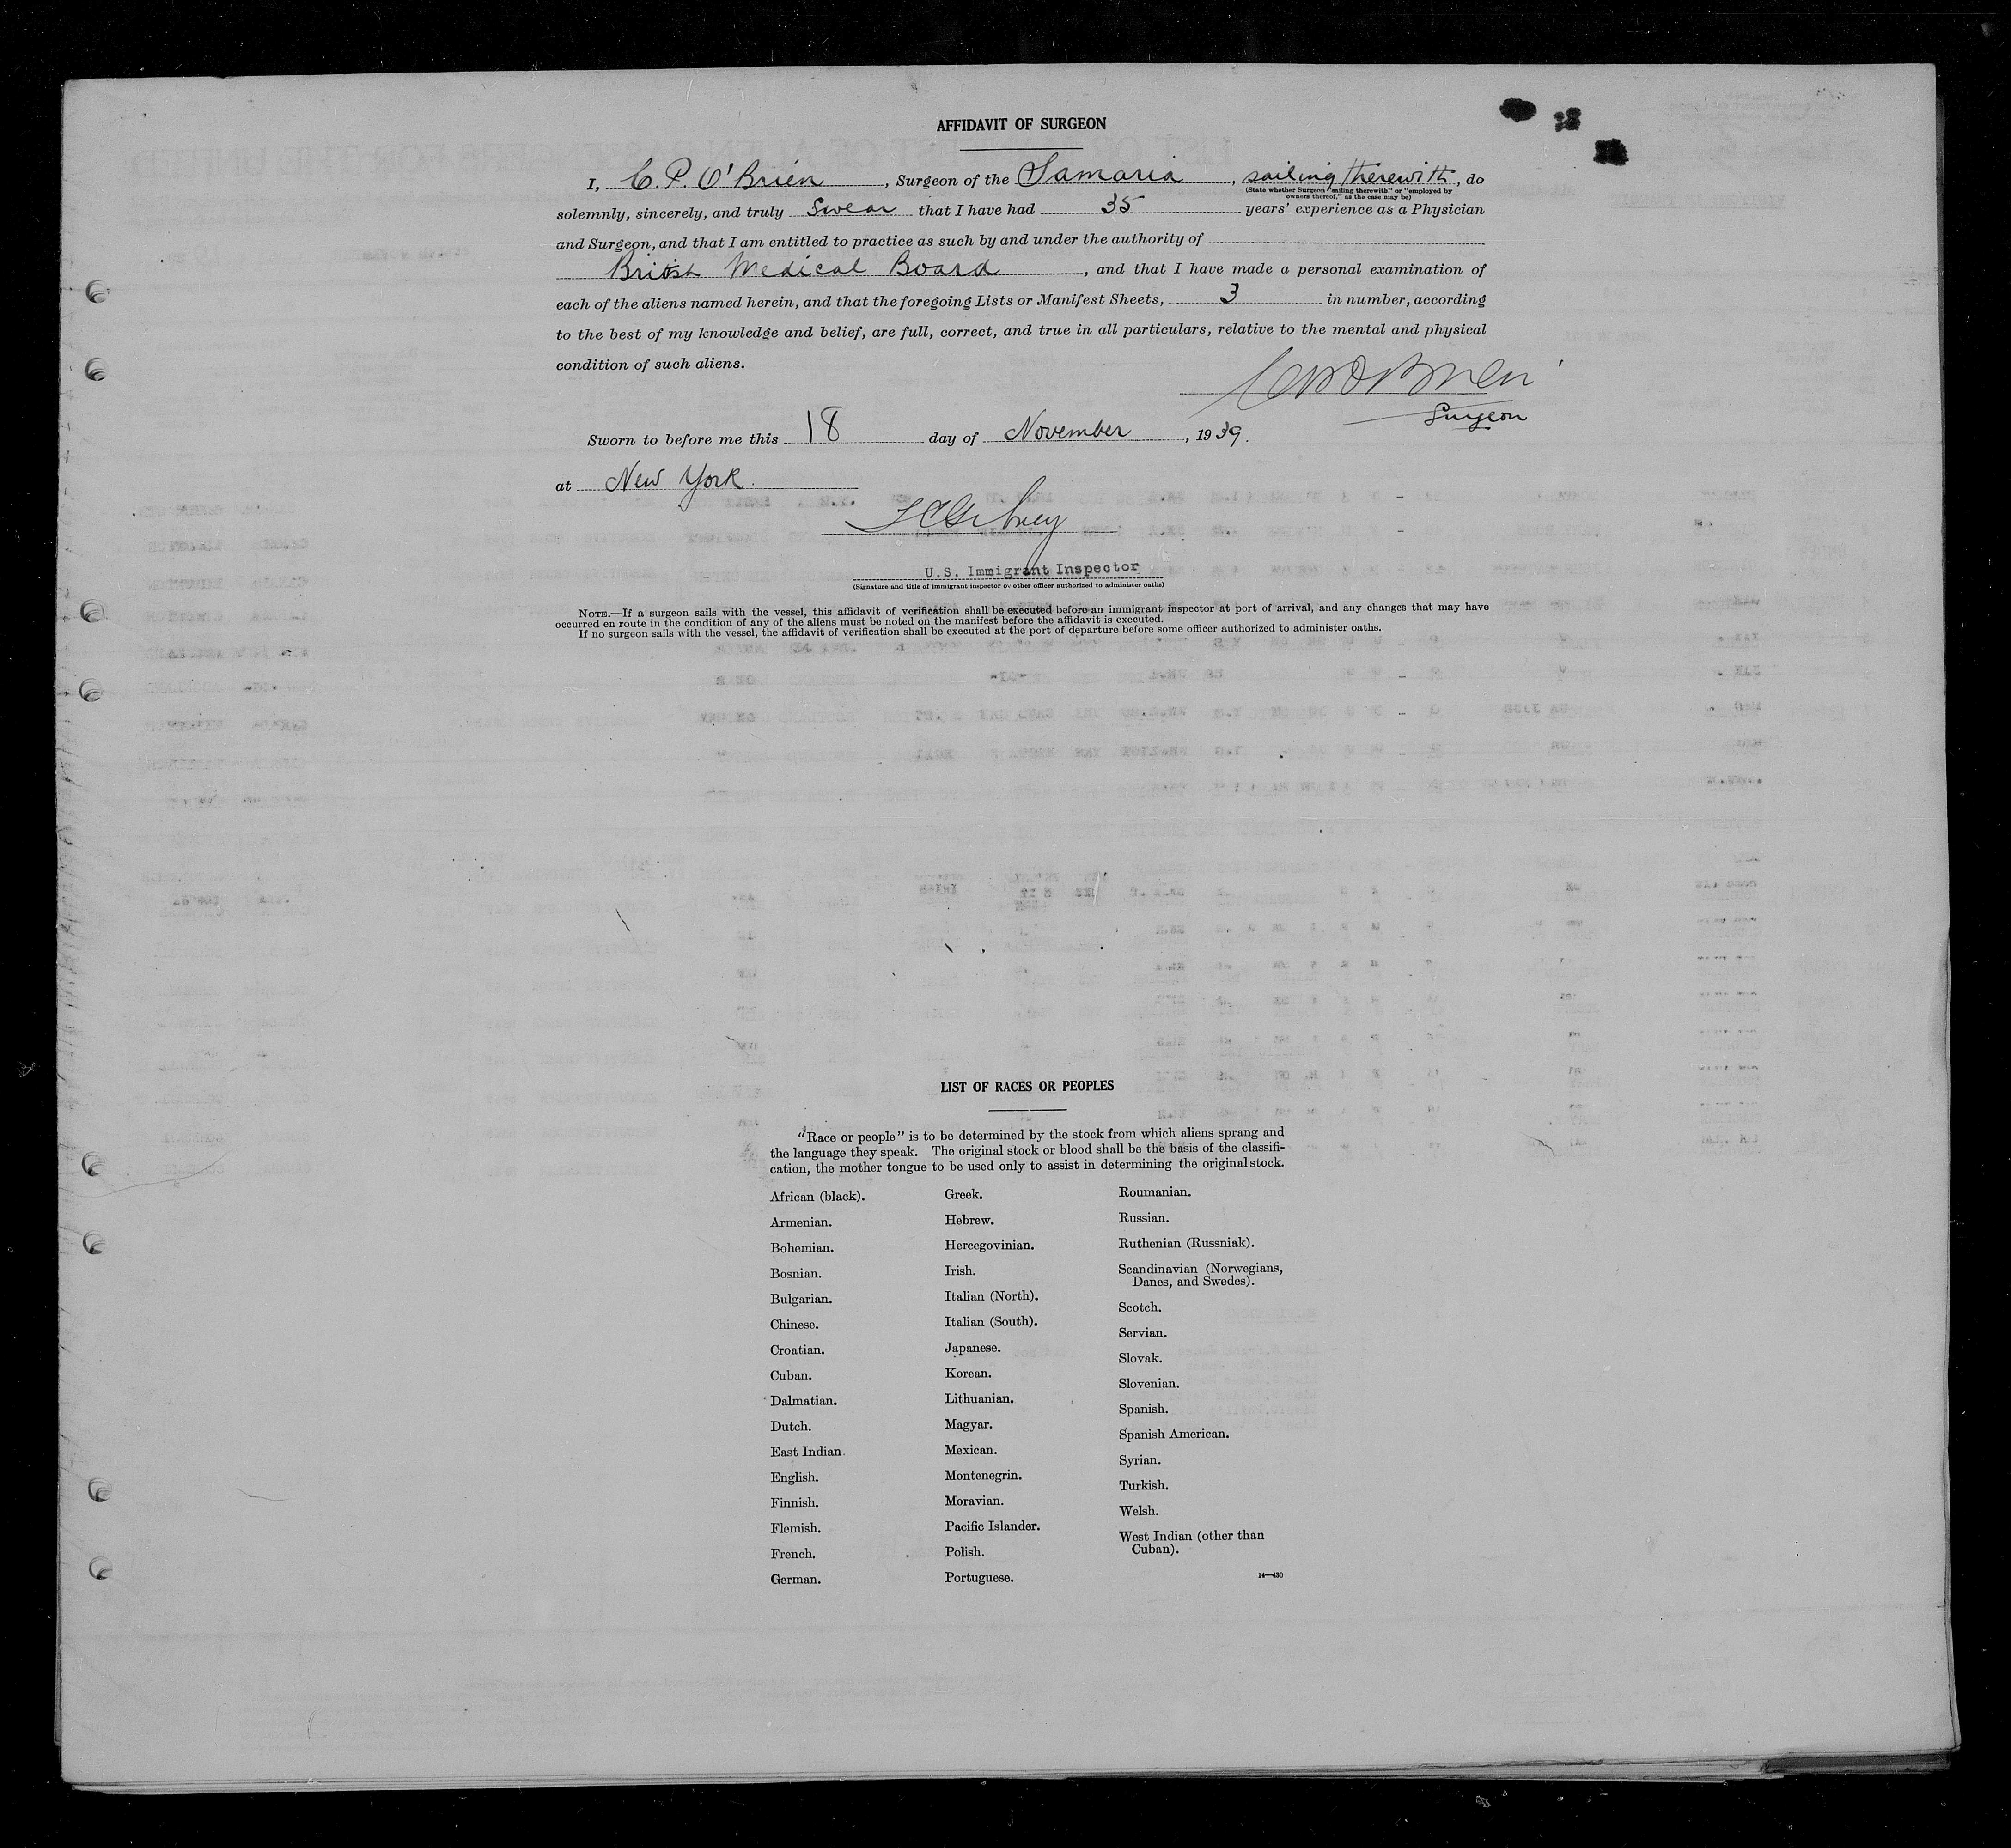 AFFIDAVIT OF SURGEON
I, C. P. O'Brien, Surgeon of the Samaria, sailing therewith, do
(State whether Surgeon "sailing therewith" or "employed by
owners thereof," as the case may be)
solemnly, sincerely, and truly Swear that I have had 35 years' experience as a Physician
and Surgeon, and that I am entitled to practice as such by and under the authority of
British Medical Board, and that I have made a personal examination of
each of the aliens named herein, and that the foregoing Lists or Manifest Sheets, 3 in number, according
to the best of my knowledge and belief, are full, correct, and true in all particulars, relative to the mental and physical
condition of such aliens.
Surgeon
Sworn to before me this 18 day of November, 1939.
at New York.
U.S. Immigrant Inspector
(Signature and title of immigrant inspector or other officer authorized to administer oaths)
NOTE.—If a surgeon sails with the vessel, this affidavit of verification shall be executed before an immigrant inspector at port of arrival, and any changes that may have
occurred en route in the condition of any of the aliens must be noted on the manifest before the affidavit is executed.
If no surgeon sails with the vessel, the affidavit of verification shall be executed at the port of departure before some officer authorized to administer oaths.
LIST OF RACES OR PEOPLES
"Race or people" is to be determined by the stock from which aliens sprang and
the language they speak. The original stock or blood shall be the basis of the classifi-
cation, the mother tongue to be used only to assist in determining the original stock.
African (black).
Armenian.
Bohemian.
Bosnian.
Bulgarian.
Chinese.
Croatian.
Cuban.
Dalmatian.
Dutch.
East Indian.
English.
Finnish.
Flemish.
French.
German.
Greek.
Hebrew.
Hercegovinian.
Irish.
Italian (North).
Italian (South).
Japanese.
Korean.
Lithuanian.
Magyar.
Mexican.
Montenegrin.
Moravian.
Pacific Islander.
Polish.
Portuguese.
Roumanian.
Russian.
Ruthenian (Russniak).
Scandinavian (Norwegians,
Danes, and Swedes).
Scotch.
Servian.
Slovak.
Slovenian.
Spanish.
Spanish American.
Syrian.
Turkish.
Welsh.
West Indian (other than
Cuban).
14—430